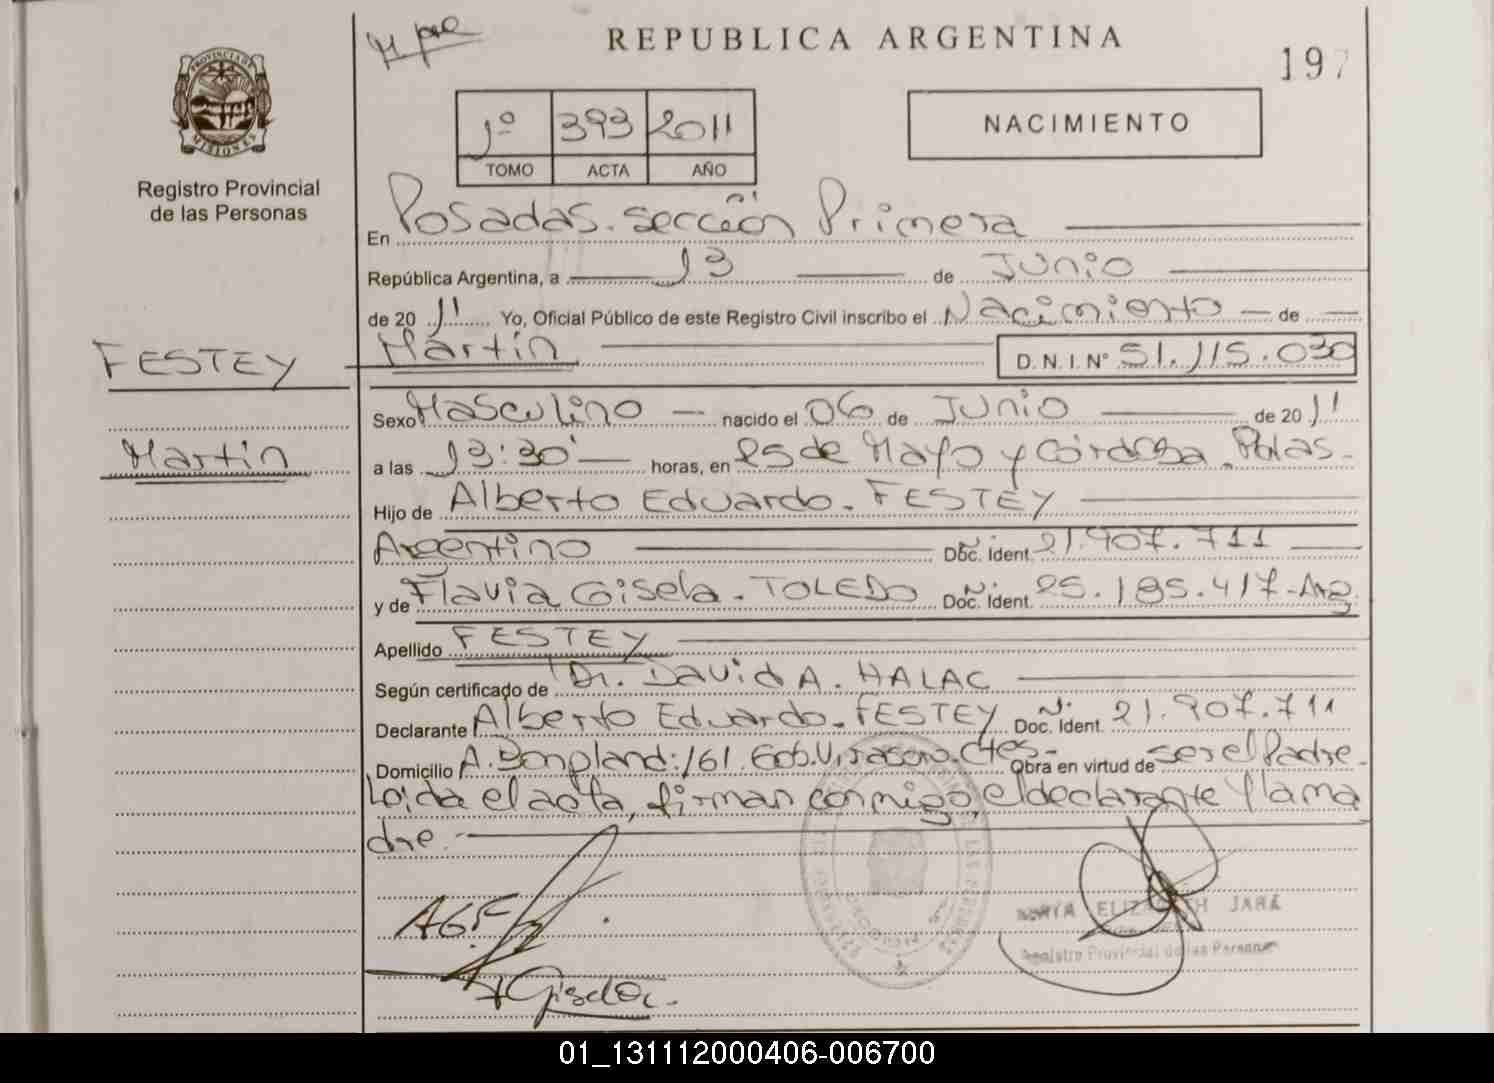 REPUBLICA ARGENTINA
197
PROVINCIA DE
MISIONES
Registro Provincial
de las Personas
1º 393 2011
TOMO ACTA AÑO
NACIMIENTO
En Posadas. sección Primera
República Argentina, a 13 de Junio
de 2011 Yo, Oficial Público de este Registro Civil inscribo el Nacimiento de
FESTEY Martín D. N. I. Nº 51.115.030
Sexo Masculino nacido el 06 de Junio de 2011
Martín a las 13:30' horas, en 25 de Mayo y Córdoba. Pdas.
Hijo de Alberto Eduardo. FESTEY
Argentino Doc. Ident. 21.907.711
y de Flavia Gisela. TOLEDO Doc. Ident. 25.185.417-Arg.
Apellido FESTEY
Según certificado de Dr. David A. HALAC
Declarante Alberto Eduardo. FESTEY Doc. Ident. 21.907.711
Domicilio A. Bonpland: 161. Gob. Virasoro. Ctes- Obra en virtud de ser el Padre.
Leida el acta, firman conmigo, el declarante y la ma
dre.-
ELIZABETH JARA
Registro Provincial de las Personas
01_131112000406-006700